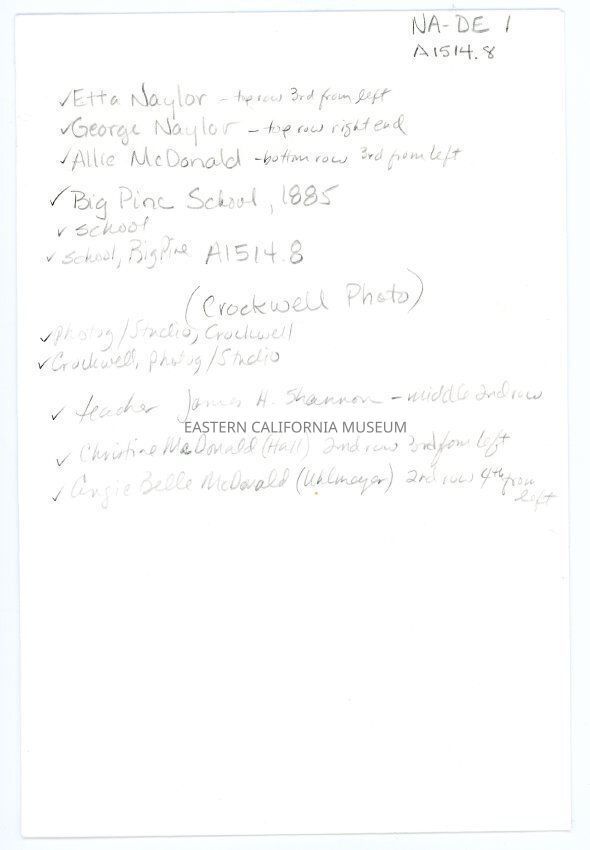 NA-DE 1
A1514.8
✓Etta Naylor - top row 3rd from left
✓George Naylor - top row right end
✓Allie McDonald - bottom row 3rd from left
✓Big Pine School, 1885
✓ school
✓ school, Big Pine A1514.8
(Crockwell Photo)
✓Photog/Studio, Crockwell
✓Crockwell, Photog/Studio
✓ teacher James H. Shannon - middle 2nd row
EASTERN CALIFORNIA MUSEUM
✓ Christine McDonald (Hall) 2nd row 3rd from left
✓ Angie Belle McDonald (Uhlmeyer) 2nd row 4th from
left